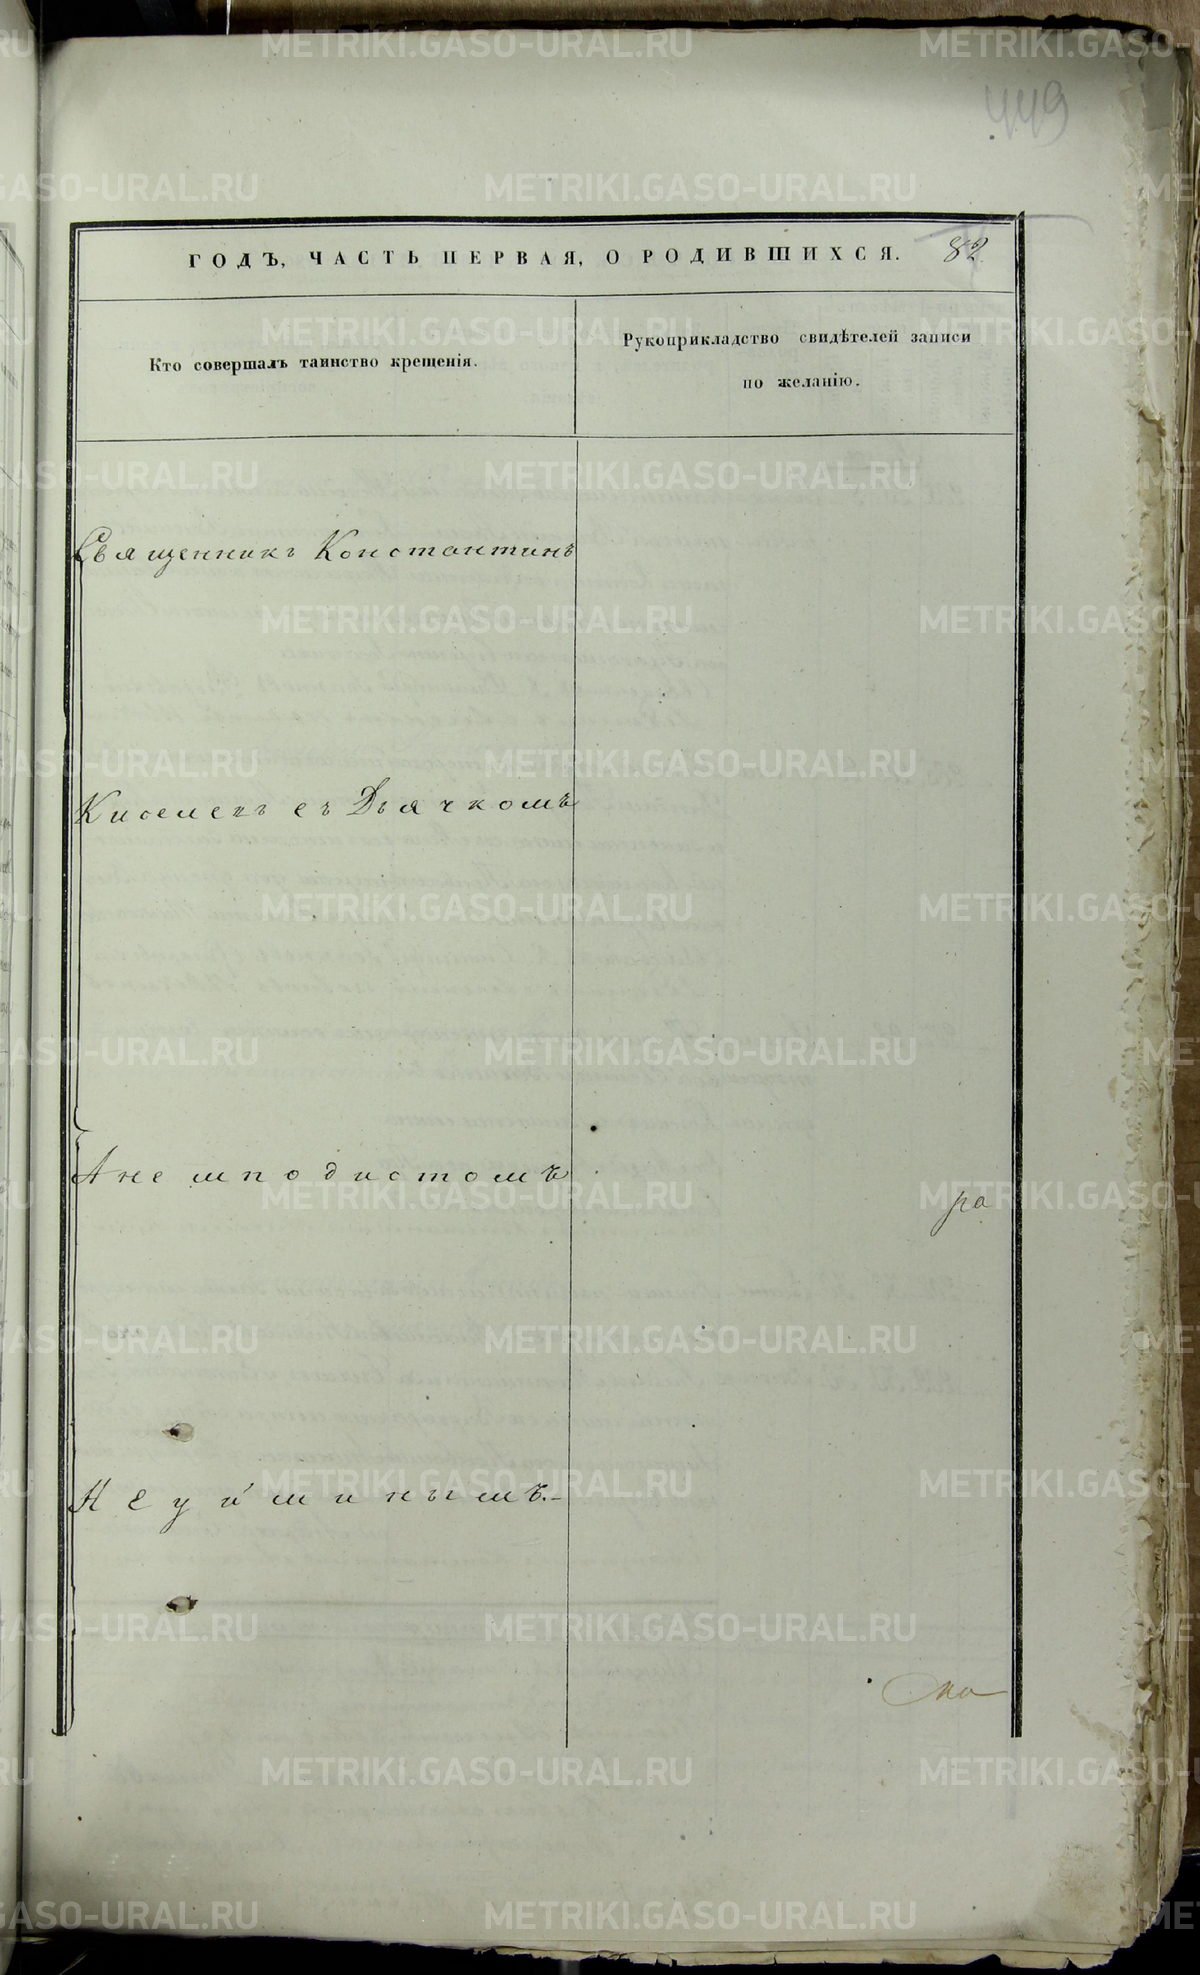 449
ГОДЪ, ЧАСТЬ ПЕРВАЯ, О РОДИВШИХСЯ. 82
Кто совершалъ таинство крещенія.
Рукоприкладство свидѣтелей записи
по желанію.
Священникъ Константинъ
Киселевъ съ Дьячкомъ
Анемподистомъ
ра
Неуйминымъ.
METRIKI.GASO-URAL.RU